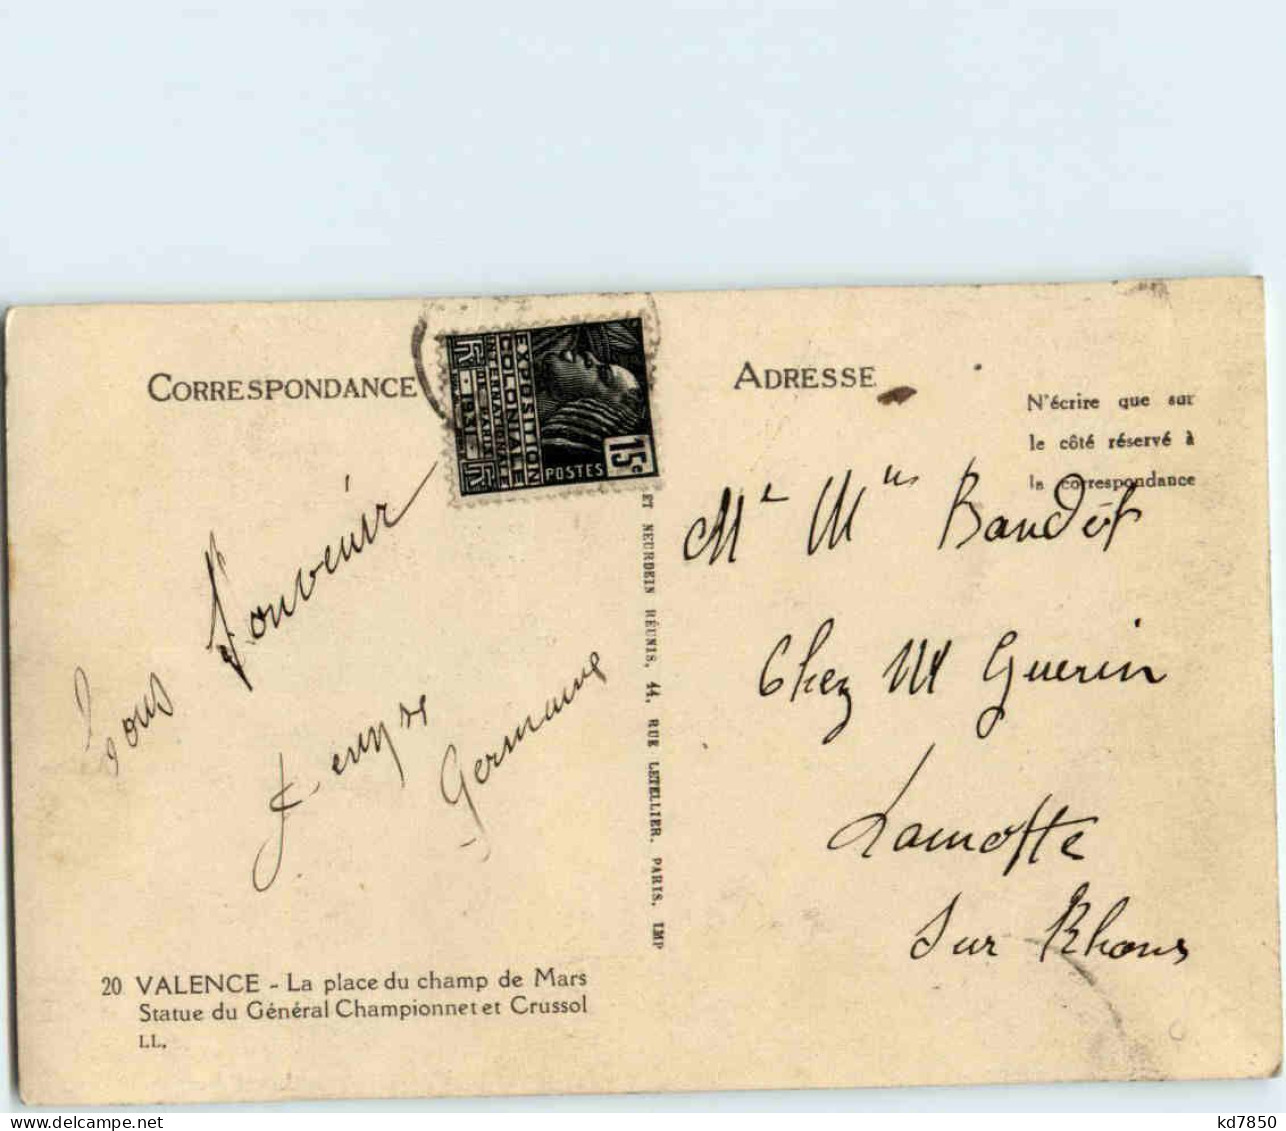 CORRESPONDANCE
EXPOSITION
COLONIALE
INTERNATIONALE
DE PARIS
RF - 1931 - RF
POSTES
15c
Souvenir
Germaine
20 VALENCE - La place du champ de Mars
Statue du Général Championnet et Crussol
LL.
ET NEURDEIN RÉUNIS, 44, RUE LETELLIER, PARIS, IMP
ADRESSE
N'écrire que sur
le côté réservé à
la correspondance
Mr Mme
Chez M Guerin
Lamotte
Sur Rhone
www.delcampe.net
kd7850